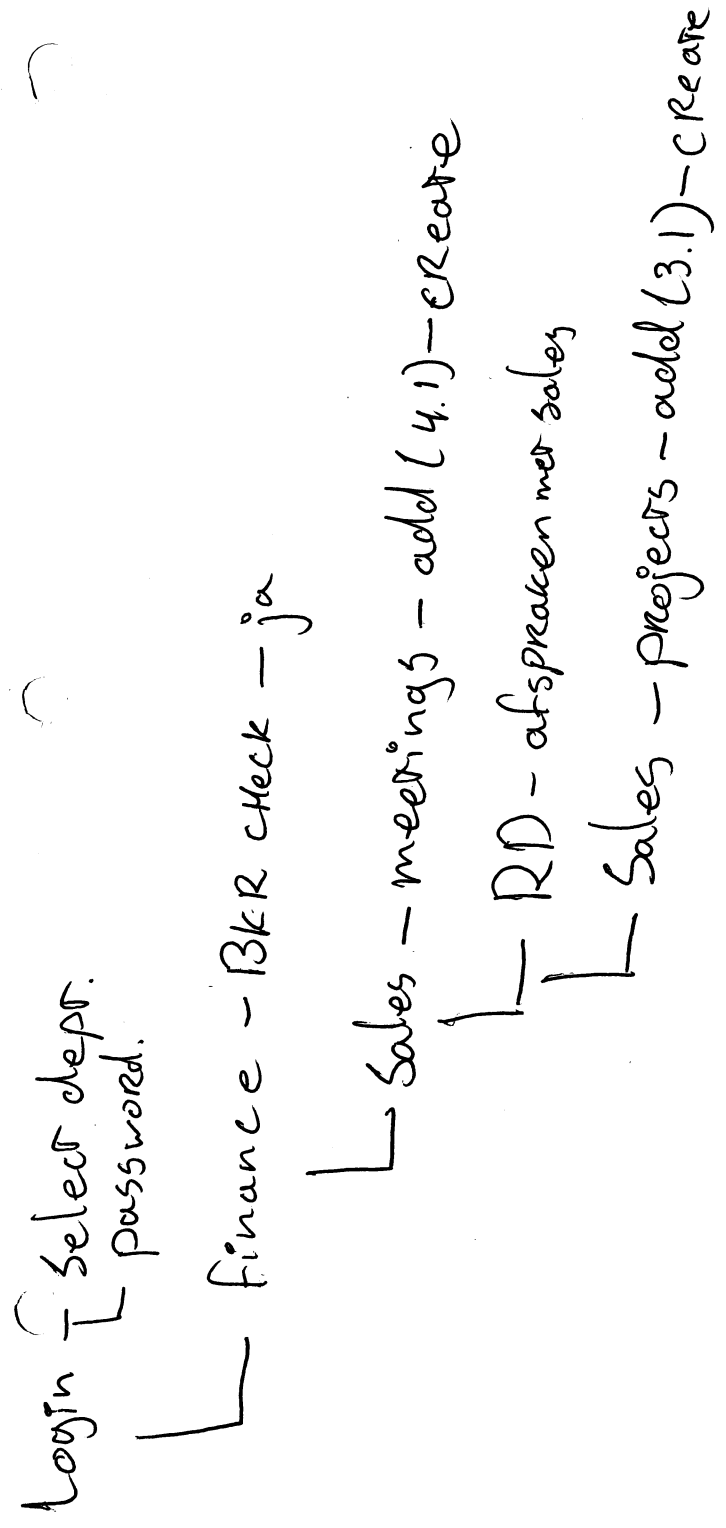 Login - Select dept.
password.
finance - BKR check - ja
Sales - meetings - add (4.1) - create
RD - afspraken met sales
Sales - projects - add (3.1) - create